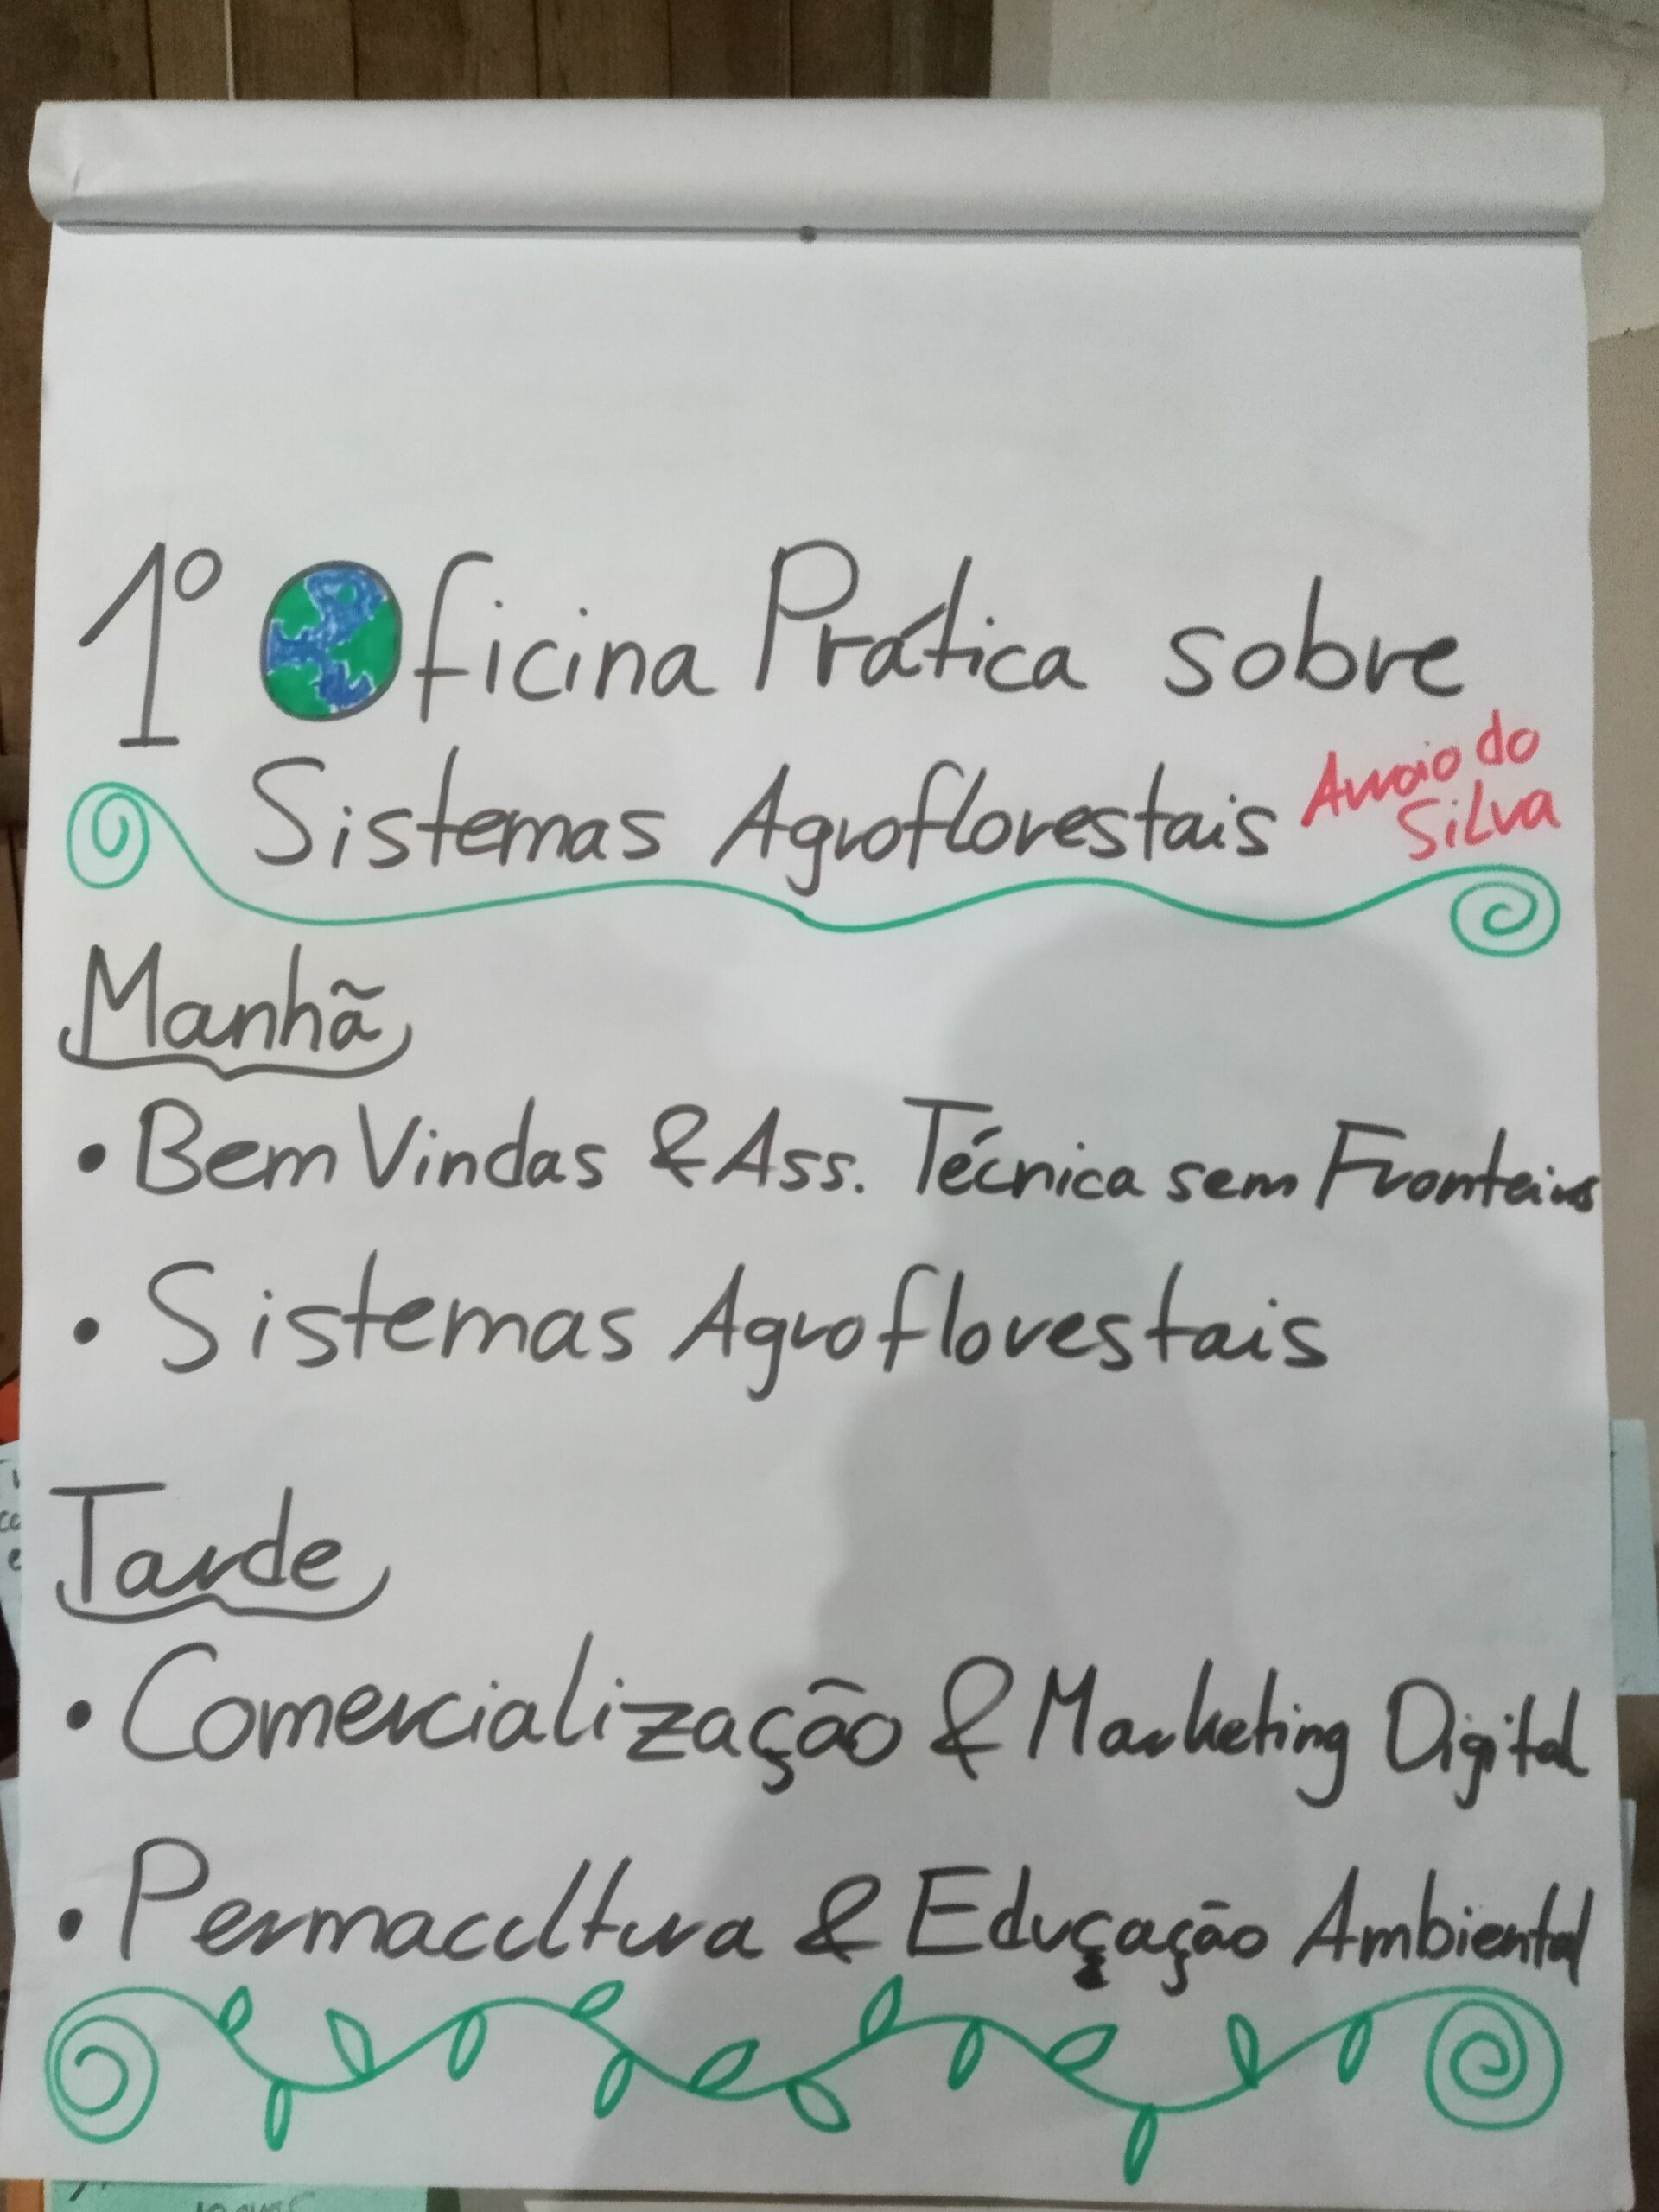 1º Oficina Prática sobre
Sistemas Agroflorestais
Arroio do
Silva
Manhã
• Bem Vindas & Ass. Técnica sem Fronteiras
• Sistemas Agroflorestais
Tarde
• Comercialização & Marketing Digital
• Permacultura & Edução Ambiental